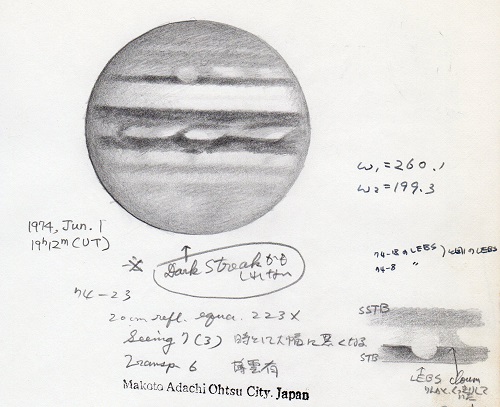 ω₁=260.1
ω₂=199.3
1974, Jun. 1
19ʰ12ᵐ(UT)
※ Dark Streakかも
しれない
74-18のLEBS
74-8 〃
74-23
20cm refl. equa. 223X
Seeing 7(3) 時として大幅に悪くなる
Transp 6 薄雲有
SSTB
STB
LEBS
Makoto Adachi Ohtsu City. Japan